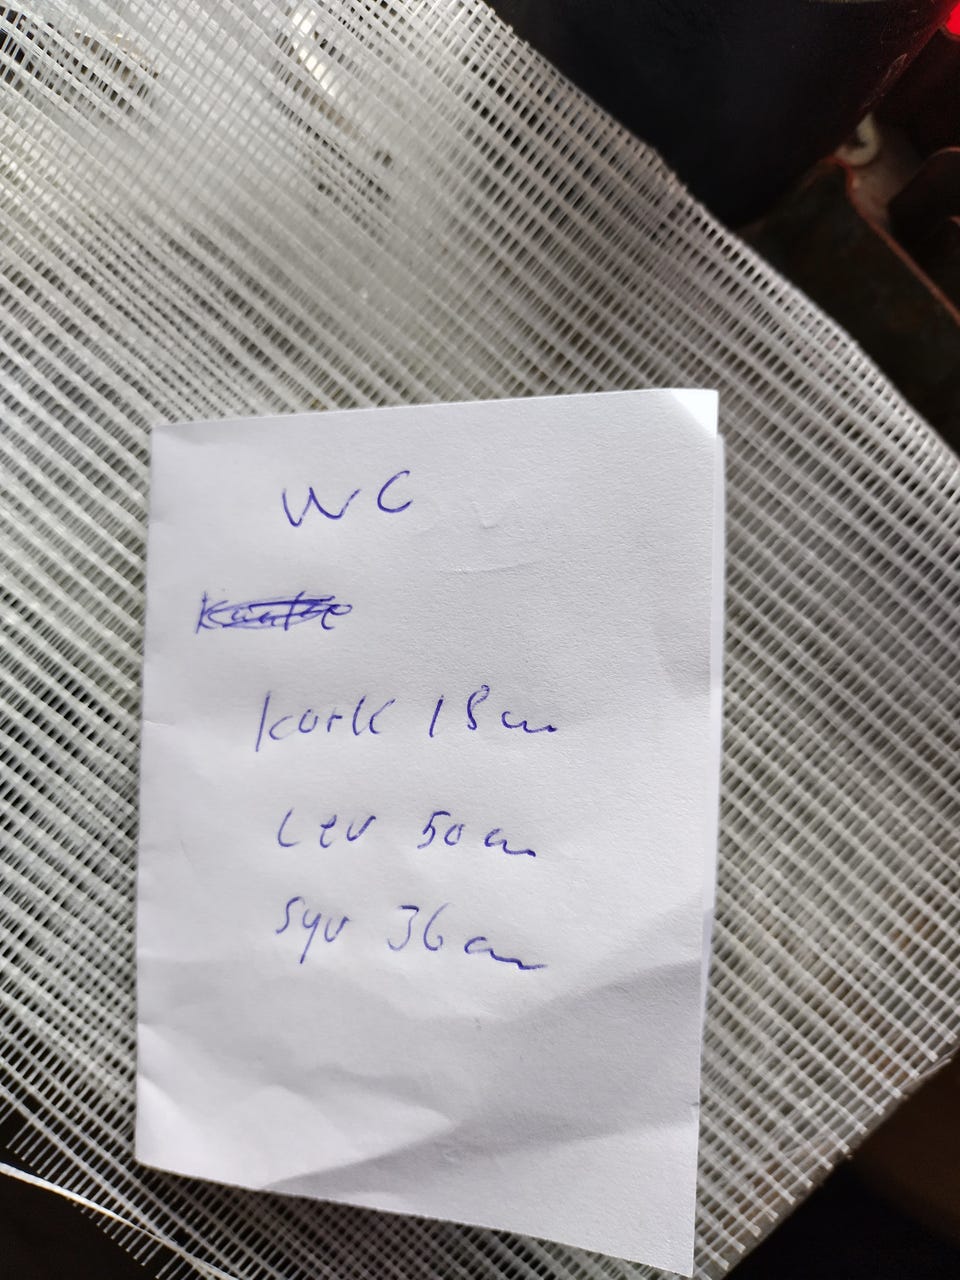 WC
kork 18 cm
Lev 50 cm
syv 36 cm